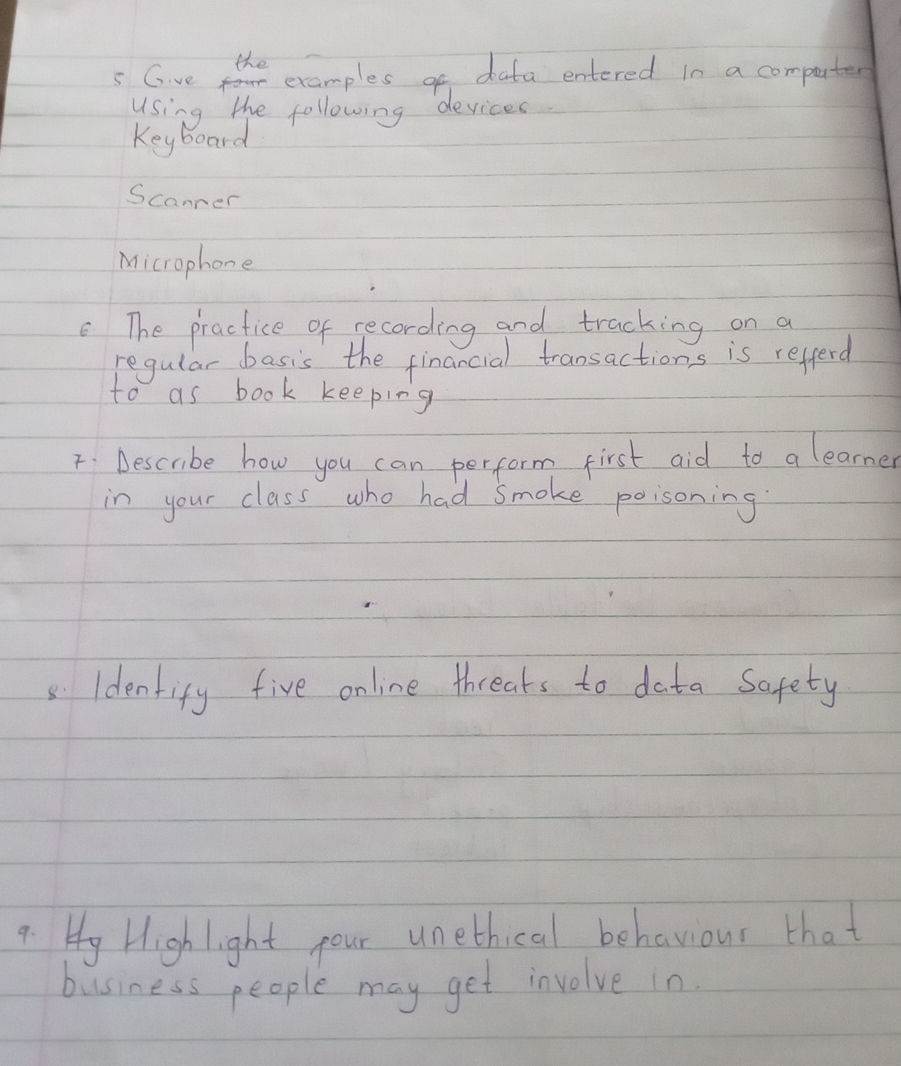 the
5 Give four examples of data entered in a computer
using the following devices.
Keyboard
Scanner
Microphone
6 The practice of recording and tracking on a
regular basis the financial transactions is refferd
to as book keeping
7. Describe how you can perform first aid to a learner
in your class who had smoke poisoning.
8. Identify five online threats to data safety
9. Hg Highlight four unethical behaviour that
business people may get involve in.